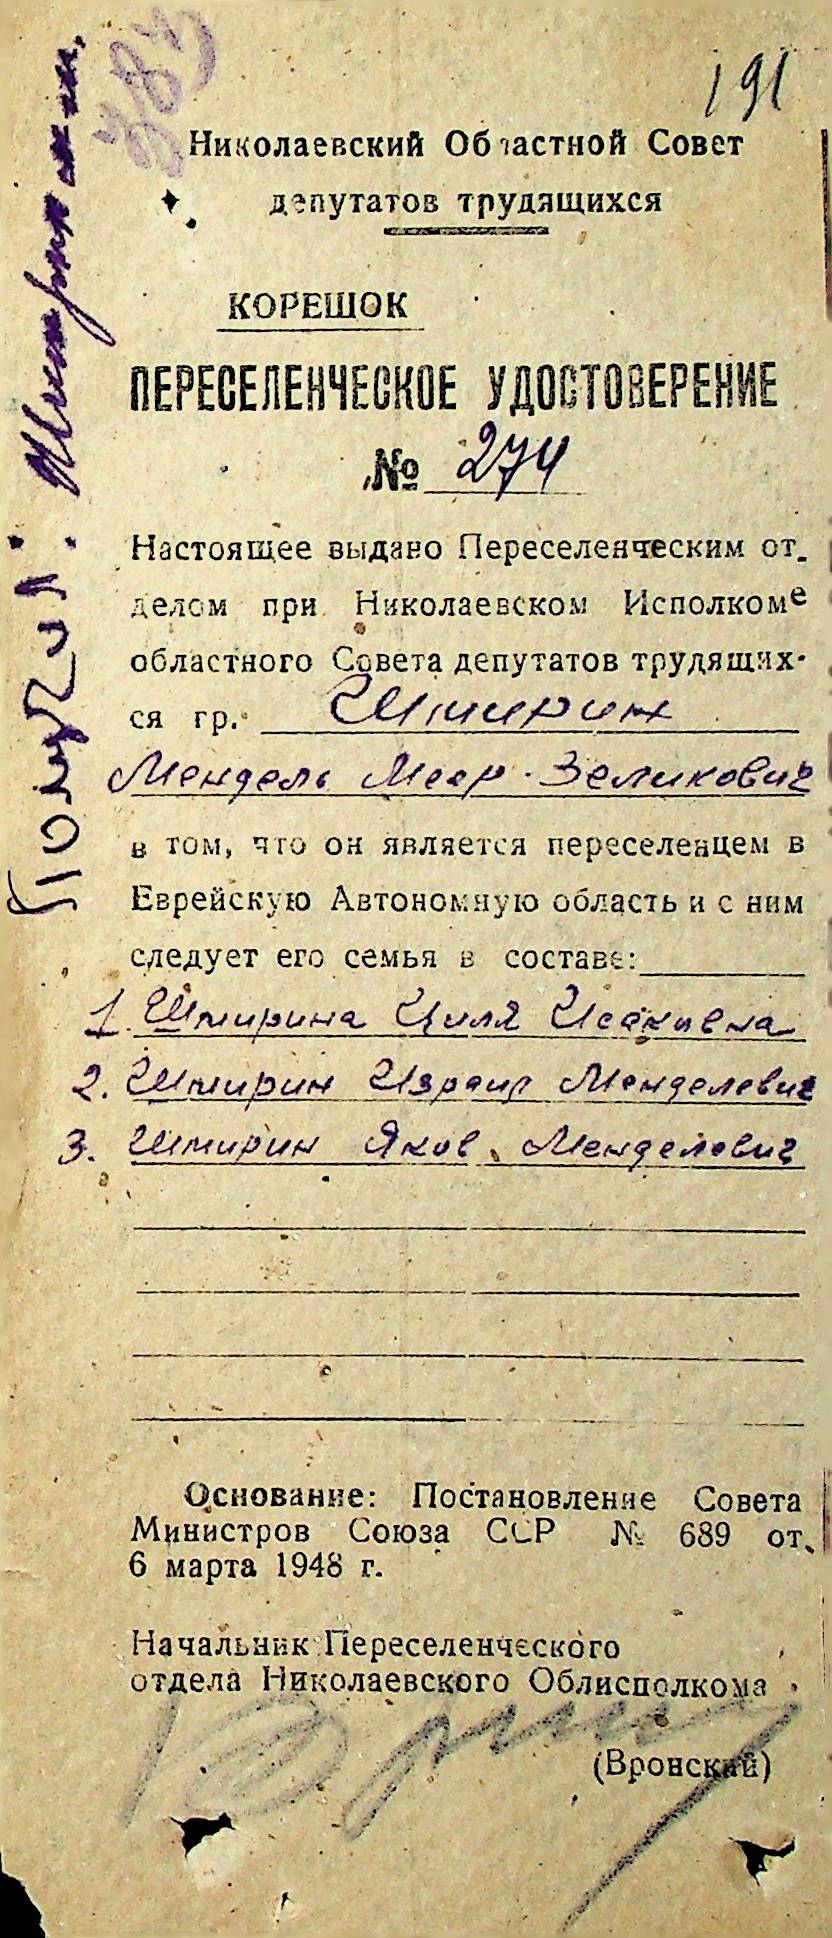 191
Николаевский Областной Совет
депутатов трудящихся
КОРЕШОК
ПЕРЕСЕЛЕНЧЕСКОЕ УДОСТОВЕРЕНИЕ
№ 274
Настоящее выдано Переселенческим от-
делом при Николаевском Исполкоме
областного Совета депутатов трудящих-
ся гр. Штирин
Мендель Меер-Зеликович
в том, что он является переселенцем в
Еврейскую Автономную область и с ним
следует его семья в составе:
1. Штирина Циля Исаковна
2. Штирин Израил Менделевич
3. Штирин Яков Менделевич
Основание: Постановление Совета
Министров Союза ССР № 689 от
6 марта 1948 г.
Начальник Переселенческого
отдела Николаевского Облисполкома
(Вронский)
Получил: